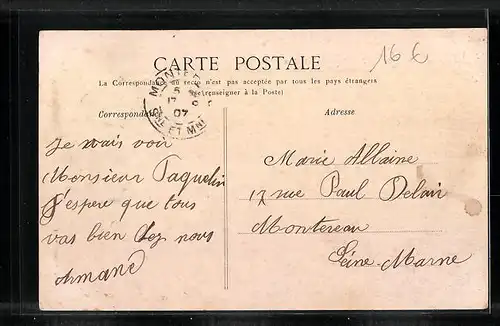 CARTE POSTALE
16 €
La Correspondance au recto n'est pas acceptée par tous les pays étrangers
(Se renseigner à la Poste)
Correspondance
Adresse
Je vais voir
Monsieur Paquelin
J'espere que tous
vas bien chez nous
Armand
Marie Allaine
17 rue Paul Delair
Montereau
Seine-Marne
MONT
5
17
07
ET MNE